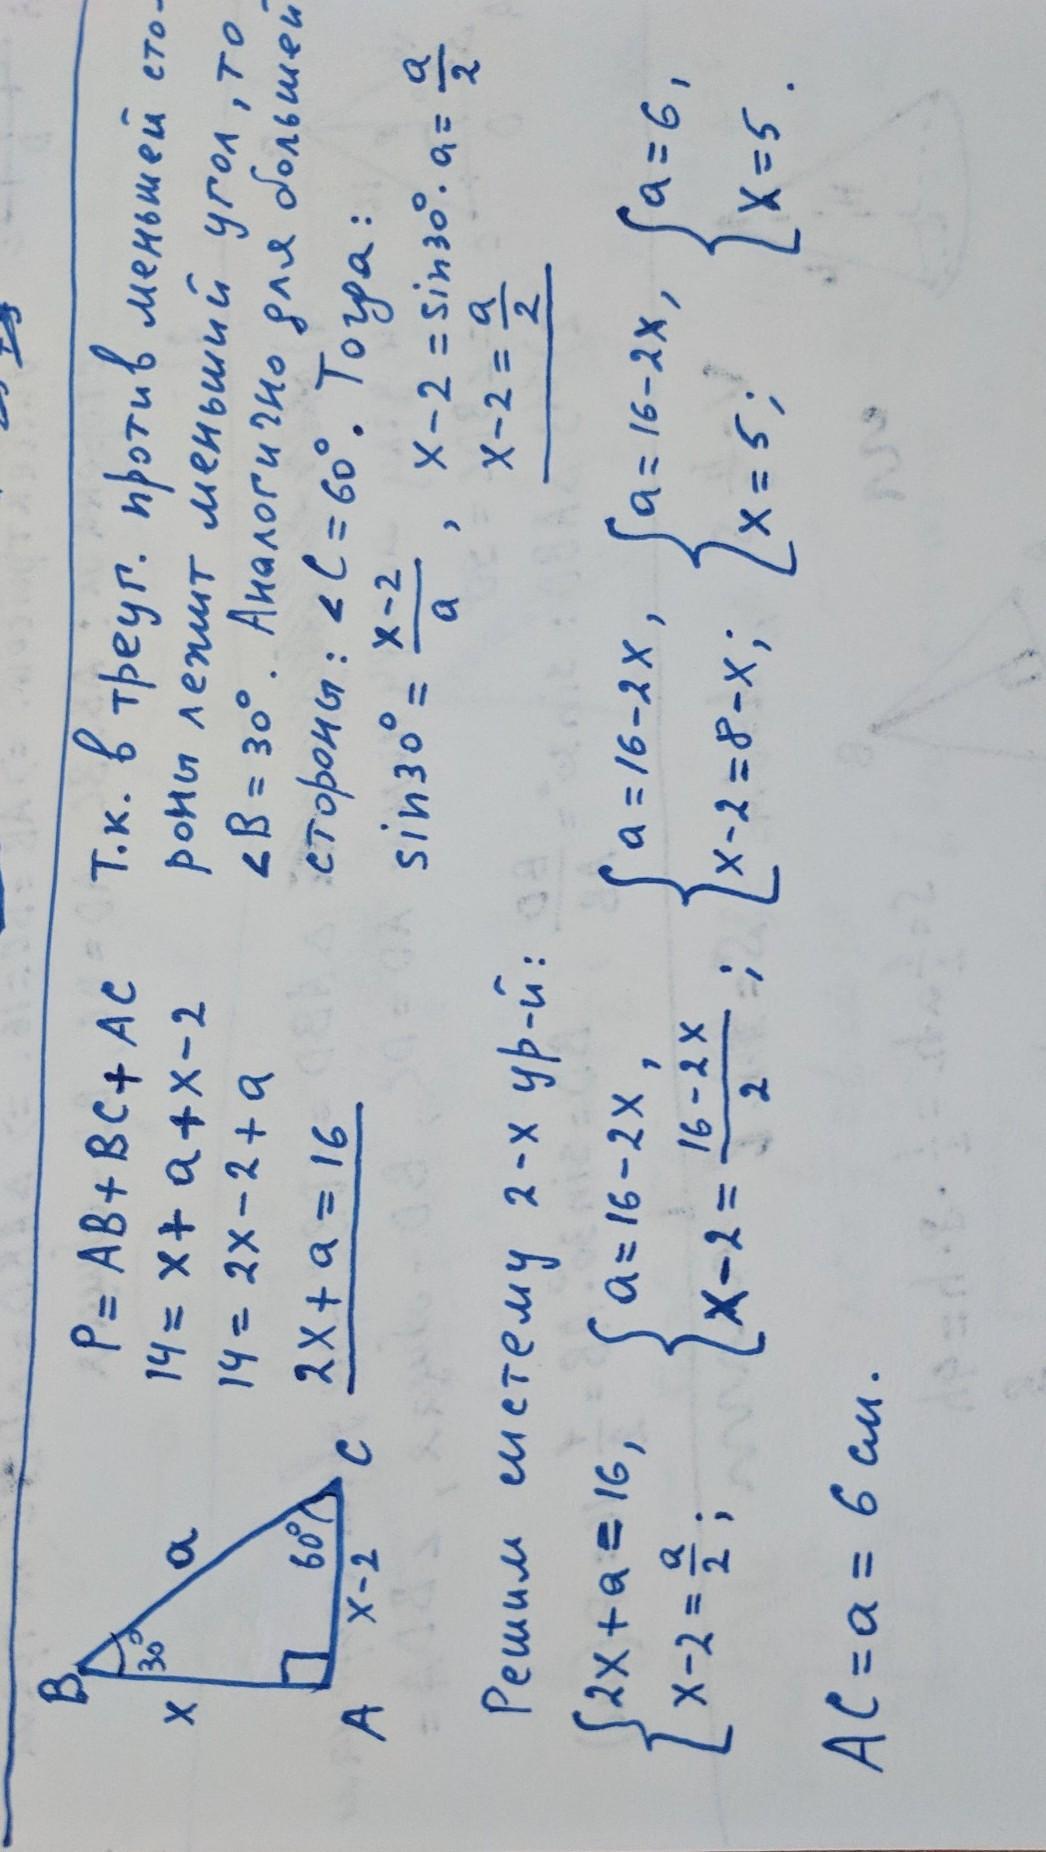 B
a
x
30°
60°
A
x-2
C
P = AB + BC + AC
14 = x + a + x - 2
14 = 2x - 2 + a
2x + a = 16
Т.к. в треуг. против меньшей сто-
роны лежит меньший угол, то
∠B = 30°. Аналогично для большей
стороны: ∠C = 60°. Тогда:
sin30° = (x-2)/a , x - 2 = sin30° · a = a/2
x - 2 = a/2
Решим систему 2-х ур-й:
{2x + a = 16, {a = 16 - 2x, {a = 16 - 2x, {a = 16 - 2x, {a = 6,
{x - 2 = a/2; {x - 2 = (16 - 2x)/2; {x - 2 = 8 - x; {x = 5; {x = 5.
AC = a = 6 см.